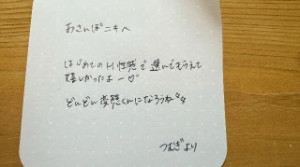 あさんぽニキへ
はじめてのM性感で選んでもらえて
嬉しかったよー♡
どんどん変態くんになろうね
つむぎより